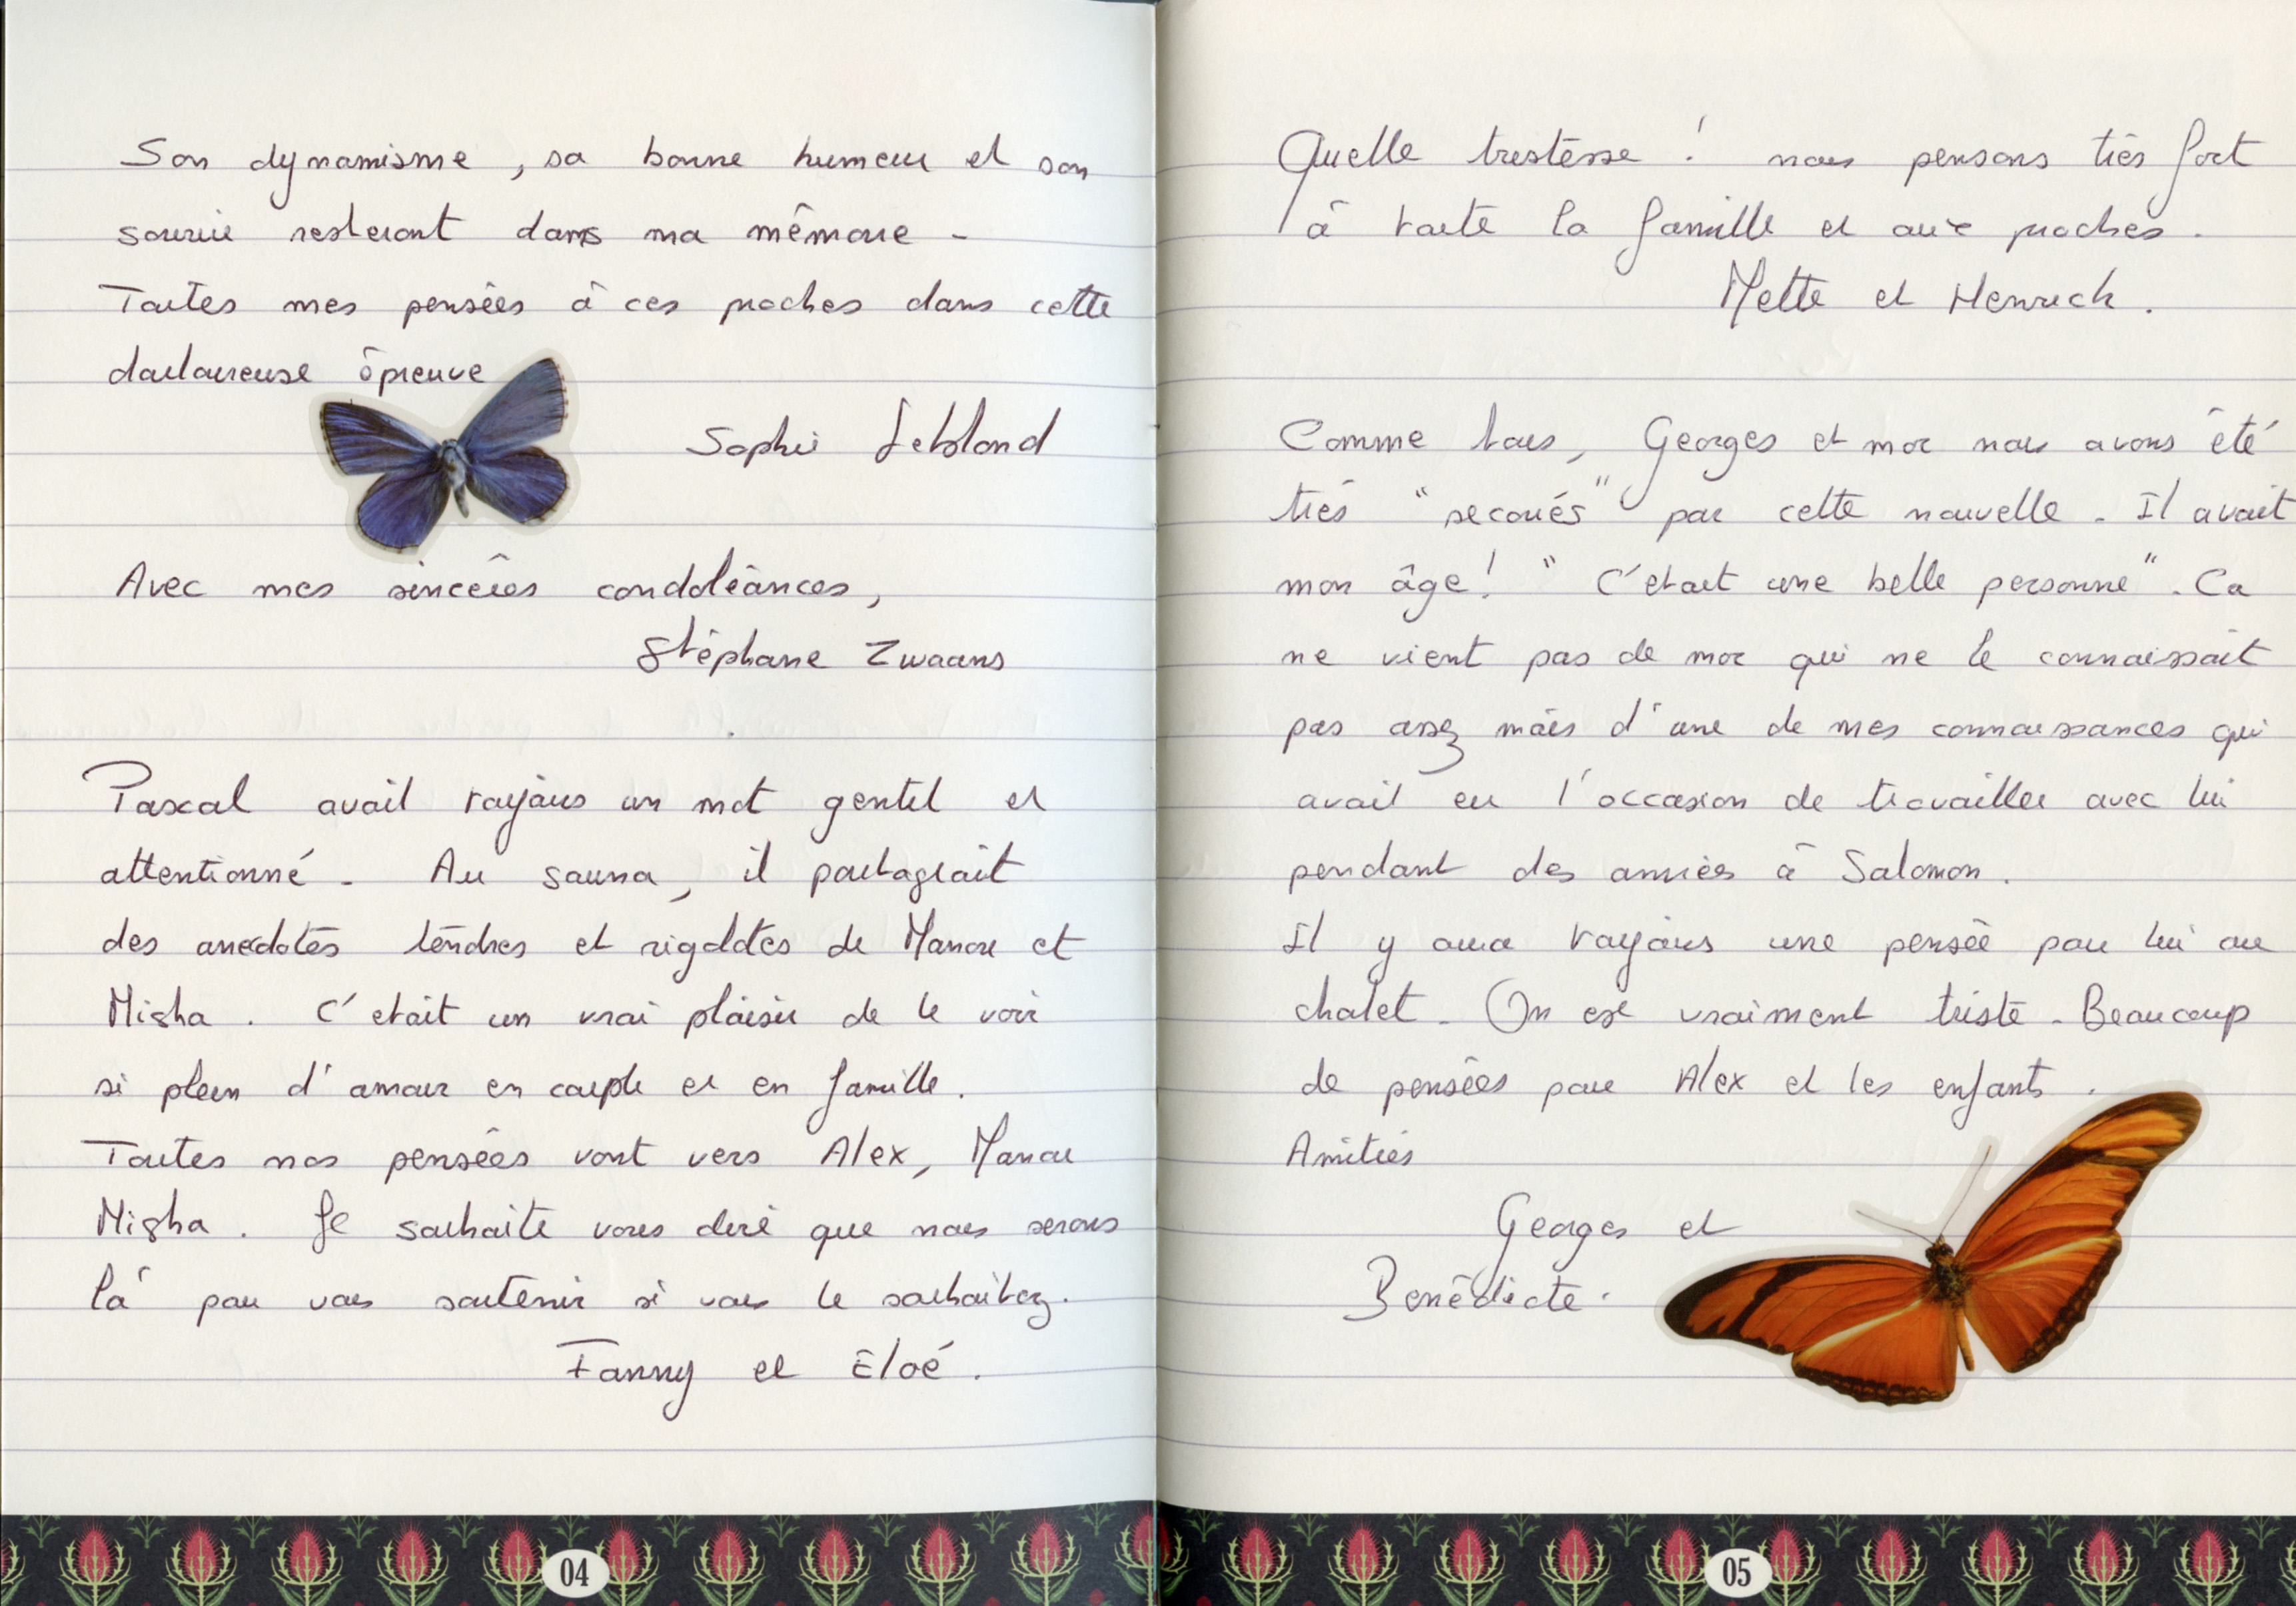 Son dynamisme, sa bonne humeur et son
sourire resteront dans ma mémoire -
Toutes mes pensées à ces proches dans cette
douloureuse épreuve
Sophie Leblond
Avec mes sincères condoléances,
Stéphane Zwaans
Pascal avait toujours un mot gentil et
attentionné - Au sauna, il partageait
des anecdotes tendres et rigolotes de Manou et
Misha. C'etait un vrai plaisir de le voir
si plein d'amour en couple et en famille.
Toutes nos pensées vont vers Alex, Manou
Misha. Je souhaite vous dire que nous serons
là pour vous soutenir si vous le souhaitez.
Fanny et Eloé.
04
Quelle tristesse ! nous pensons très fort
à toute la famille et aux proches.
Mette et Henrick.
Comme tous, Georges et moi nous avons été
très "secoués" par cette nouvelle - Il avait
mon âge! "C'etait une belle personne". Ca
ne vient pas de moi qui ne le connaissait
pas assez mais d'une de mes connaissances qui
avait eu l'occasion de travailler avec lui
pendant des années à Salomon.
Il y aura toujours une pensée pour lui au
chalet - On est vraiment triste - Beaucoup
de pensées pour Alex et les enfants.
Amitiés
Georges et
Bénédicte.
05